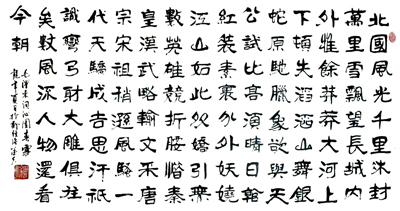 北國風光千里冰封
萬里雪飄望長城內
外惟餘莽莽大河上
下頓失滔滔山舞銀
蛇原馳臘象欲與天
公試比高須晴日看
紅裝素裹分外妖嬈
江山如此多嬌引無
數英雄競折腰惜秦
皇漢武略輸文采唐
宗宋祖稍遜風騷一
代天驕成吉思汗祇
識彎弓射大雕俱往
矣數風流人物還看
今朝
毛澤東詞沁園春雪